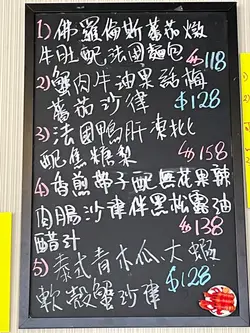 1) 佛羅倫斯蕃茄燉
牛肚配法國麵包 $118
2) 蟹肉牛油果話梅
蕃茄沙律 $128
3) 法國鴨肝凍批
配焦糖梨 $158
4) 香煎帶子配無花果辣
肉腸沙律伴黑松露油
醋汁 $138
5) 泰式青木瓜大蝦
軟殼蟹沙律 $128